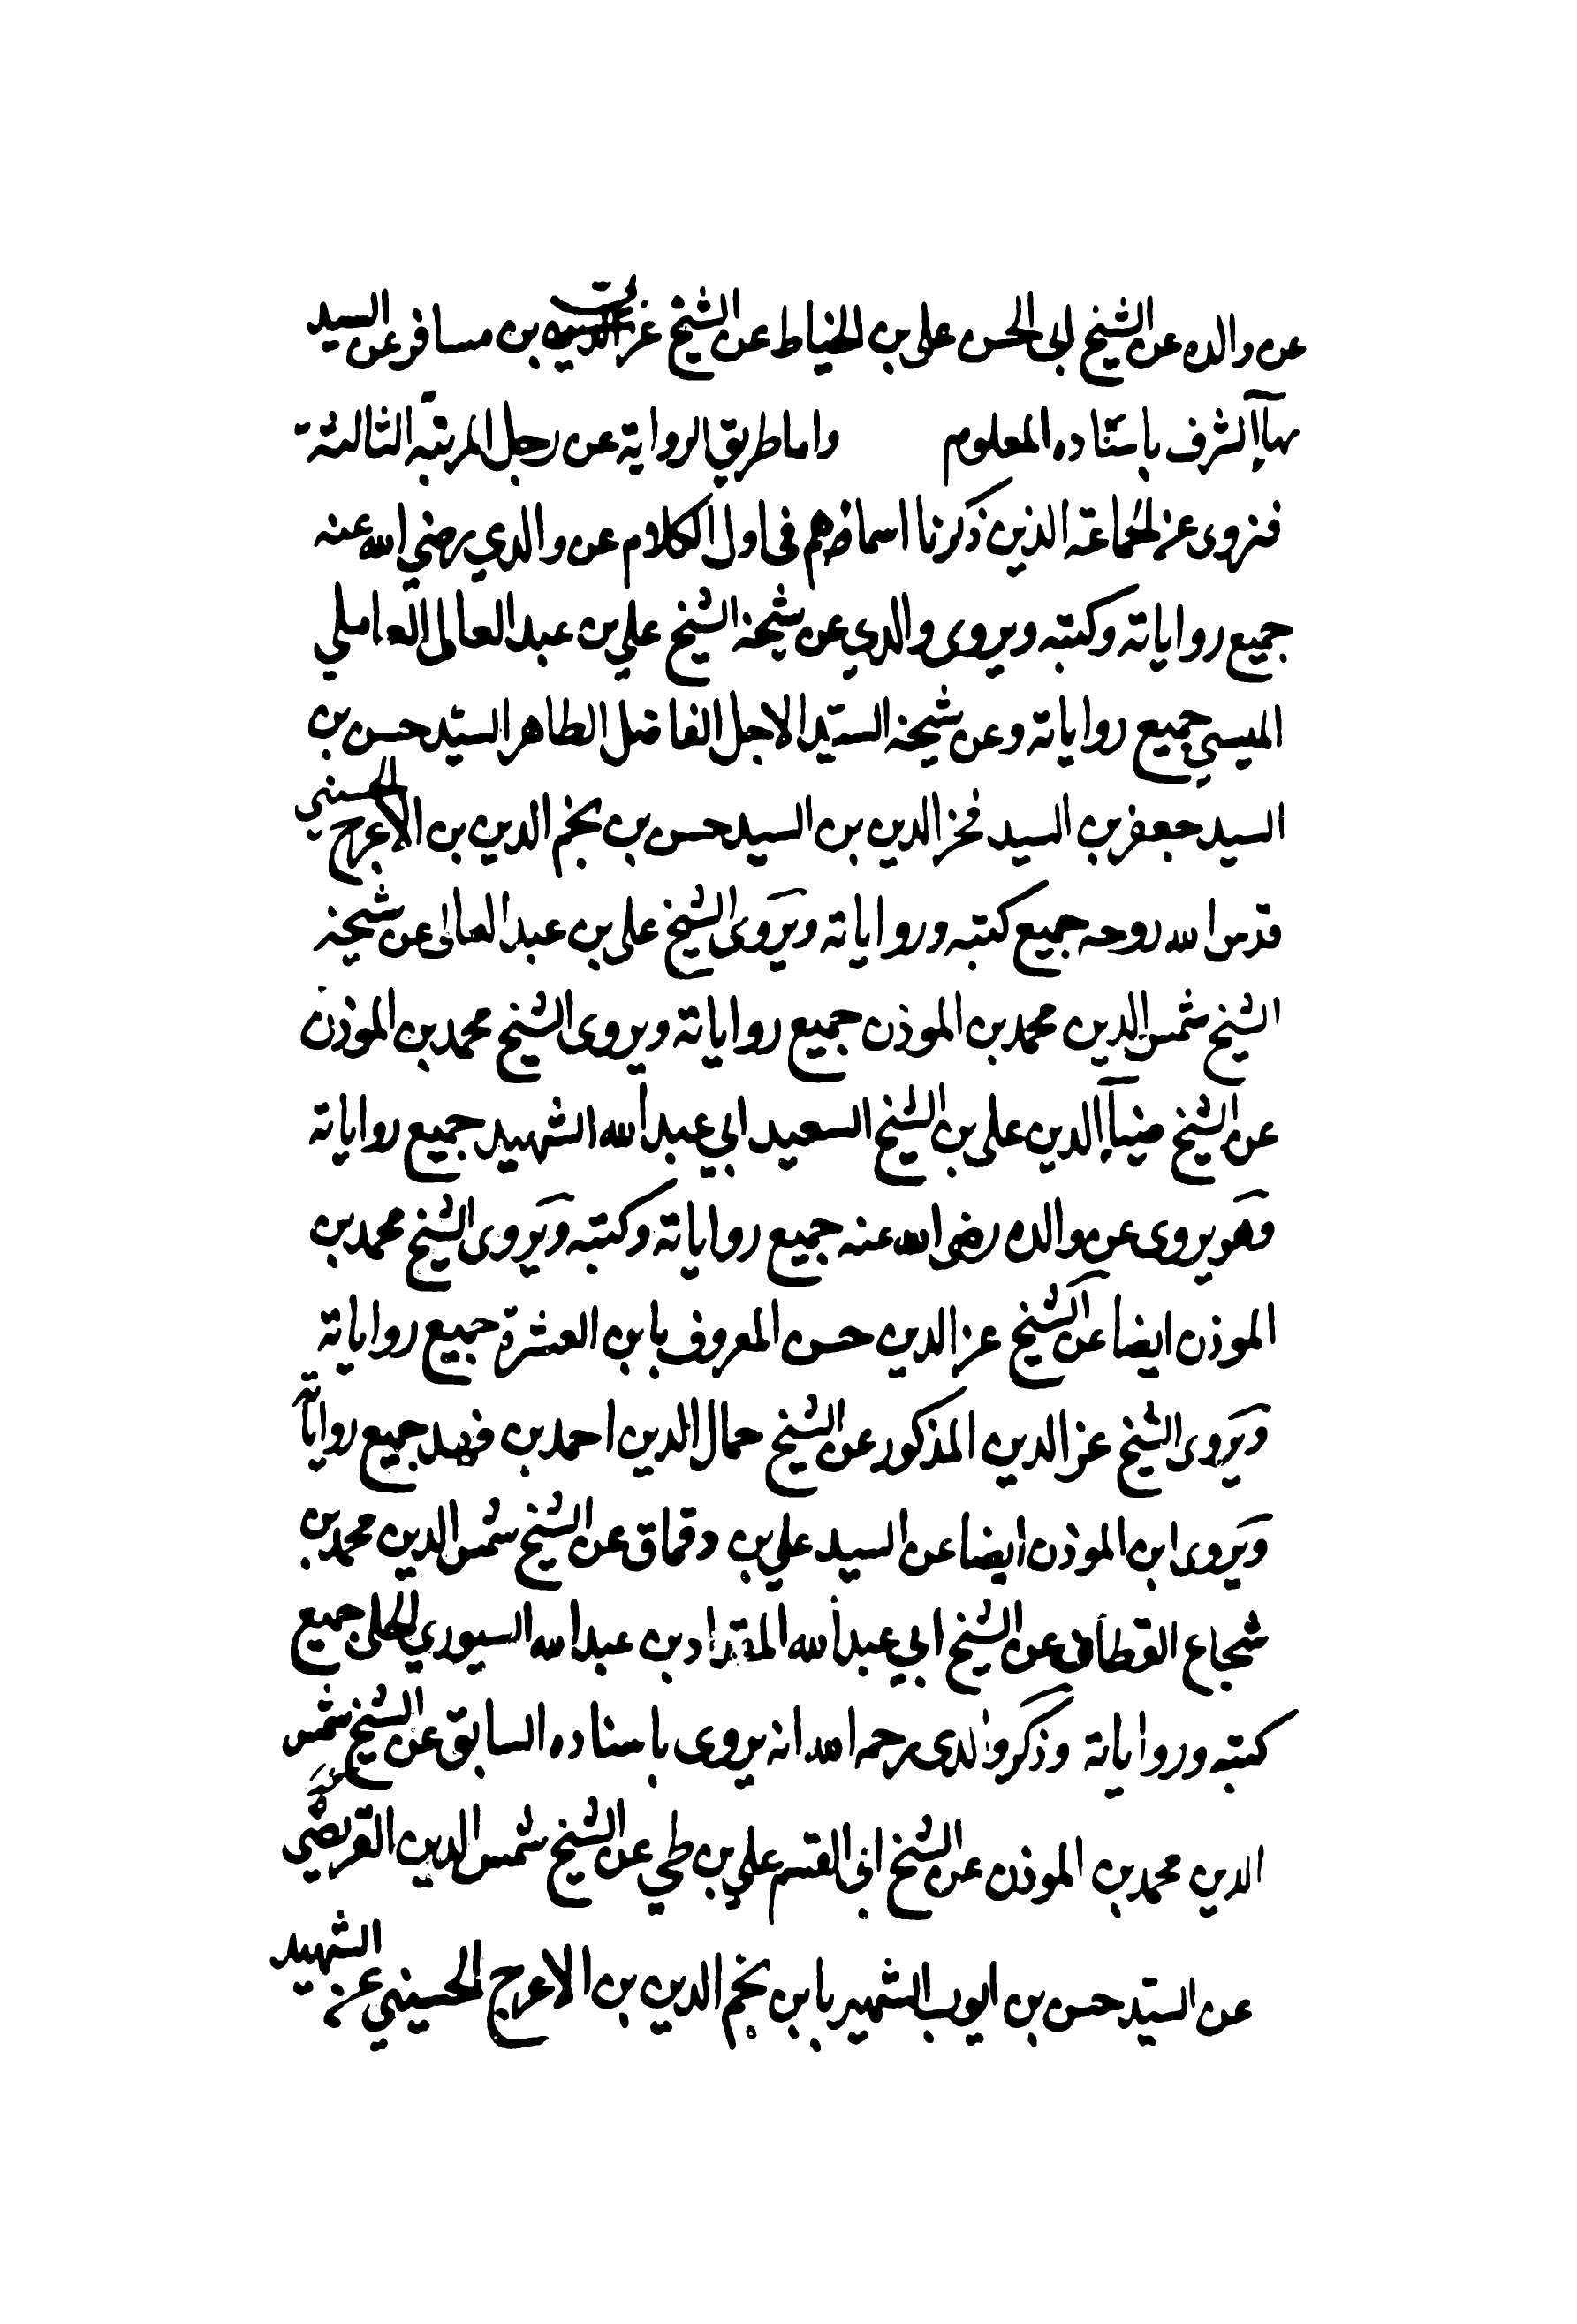 عن والده عن الشيخ ابى الحسن على بن الخياط عن الشيخ بن مسافر عن السيد
بهاء الشرف باسناده المعلوم واما طريق الرواية عن رجل المرتبة الثالثة
فنروى عن الجماعة الذين ذكرنا اسماءهم فى اول الكلام عن والدي رضي الله عنه
جميع رواياته وكتبه ويروى والدي عن شيخه الشيخ علي بن عبد العالى العاملي
الميسي جميع رواياته وعن شيخه السيد الاجل الفاضل الطاهر السيد حسن بن
السيد جعفر بن السيد فخر الدين بن السيد حسن بن نجم الدين بن الاعرج الحسيني
قدس الله روحه جميع كتبه ورواياته ويروى الشيخ على بن عبد العالى عن شيخه
الشيخ شمس الدين محمد بن الموذن جميع رواياته ويروى الشيخ محمد بن الموذن
عن الشيخ ضياء الدين على بن الشيخ السعيد ابي عبد الله الشهيد جميع رواياته
وهو يروى عن والده رضى الله عنه جميع رواياته وكتبه ويروى الشيخ محمد بن
الموذن ايضا عن الشيخ عز الدين حسن المعروف بابن العشرة جميع رواياته
ويروى الشيخ عز الدين المذكور عن الشيخ جمال الدين احمد بن فهد جميع رواياته
ويروى ابن الموذن ايضا عن السيد علي بن دقماق عن الشيخ شمس الدين محمد بن
شجاع القطان عن الشيخ ابي عبد الله المقداد بن عبد الله السيوري الحلى جميع
كتبه ورواياته وذكر والدى رحمه الله انه يروى باسناده السابق عن الشيخ شمس
الدين محمد بن الموذن عن الشيخ ابى القسم علي بن طي عن الشيخ شمس الدين العريضي
عن السيد حسن بن ايوب الشهير بابن نجم الدين بن الاعرج الحسيني عن الشهيد